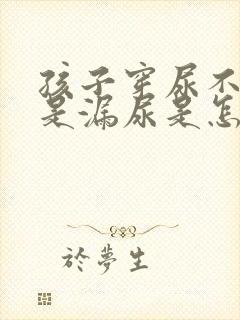 孩子穿尿不
是漏尿是怎
於夢生